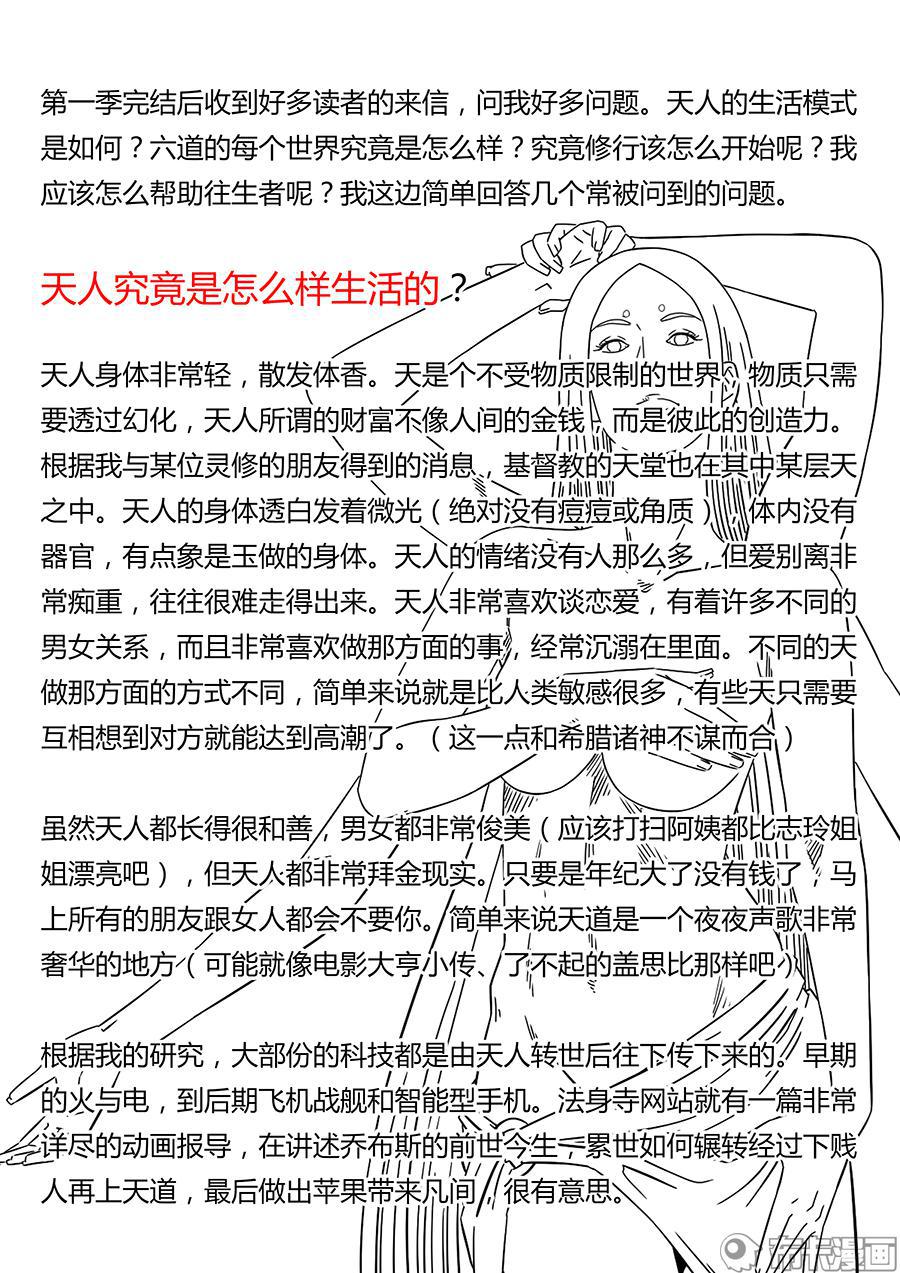 第一季完结后收到好多读者的来信，问我好多问题。天人的生活模式
是如何？六道的每个世界究竟是怎么样？究竟修行该怎么开始呢？我
应该怎么帮助往生者呢？我这边简单回答几个常被问到的问题。
天人究竟是怎么样生活的？
天人身体非常轻，散发体香。天是个不受物质限制的世界，物质只需
要透过幻化，天人所谓的财富不像人间的金钱，而是彼此的创造力。
根据我与某位灵修的朋友得到的消息，基督教的天堂也在其中某层天
之中。天人的身体透白发着微光（绝对没有痘痘或角质），体内没有
器官，有点象是玉做的身体。天人的情绪没有人那么多，但爱别离非
常痴重，往往很难走得出来。天人非常喜欢谈恋爱，有着许多不同的
男女关系，而且非常喜欢做那方面的事，经常沉溺在里面。不同的天
做那方面的方式不同，简单来说就是比人类敏感很多，有些天只需要
互相想到对方就能达到高潮了。（这一点和希腊诸神不谋而合）
虽然天人都长得很和善，男女都非常俊美（应该打扫阿姨都比志玲姐
姐漂亮吧），但天人都非常拜金现实。只要是年纪大了没有钱了，马
上所有的朋友跟女人都会不要你。简单来说天道是一个夜夜声歌非常
奢华的地方（可能就像电影大亨小传、了不起的盖思比那样吧）
根据我的研究，大部份的科技都是由天人转世后往下传下来的。早期
的火与电，到后期飞机战舰和智能型手机。法身寺网站就有一篇非常
详尽的动画报导，在讲述乔布斯的前世今生，累世如何辗转经过下贱
人再上天道，最后做出苹果带来凡间，很有意思。
布卡漫画